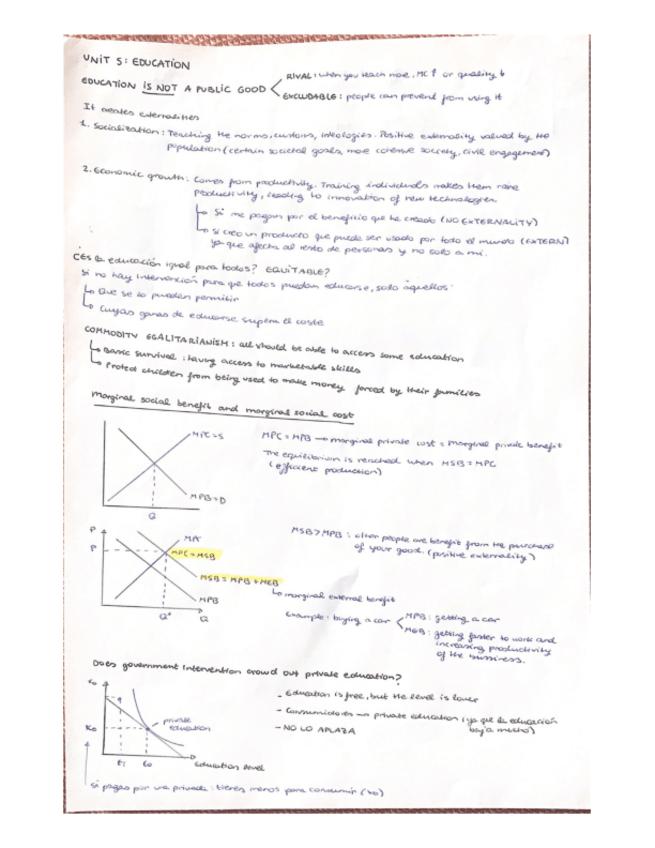 UNIT 5: EDUCATION
EDUCATION IS NOT A PUBLIC GOOD
RIVAL: when you teach more, MC↑ or quality ↓
EXCLUDABLE: people can prevend from using it
It creates externalities
1. Socialization: Teaching the norms, customs, ideologies. Positive externality valued by the
population (certain societal goals, more cohensive society, civil engagement)
2. Economic growth: Comes from productivity. Training individuals makes them more
productivity, leading to innovation of new technologies.
Si me pagan por el beneficio que he creado (NO EXTERNALITY)
Si creo un producto que puede ser usado por todo el mundo (EXTERN)
ya que afecta al resto de personas y no solo a mí.
¿Es la educación igual para todos? EQUITABLE?
Si no hay intervención para que todos puedan educarse, solo aquellos:
Que se lo puedan permitir
Cuyas ganas de educarse supera el coste
COMMODITY EGALITARIANISM: all should be able to access some education
Basic survival: having access to marketable skills
Protect children from being used to make money forced by their families
Marginal social benefit and marginal social cost
MPC=S
MPB=D
Q
MPC = MPB → marginal private cost = marginal private benefit
The equilibrium is reached when MSB = MPC
(efficient production)
P
P
MPC
MPC = MSB
MSB = MPB + MEB
MPB
Q*
Q
MSB > MPB: other people are benefit from the purchase
of your good. (positive externality)
marginal external benefit
Example: buying a car
MPB: getting a car
MEB: getting faster to work and
increasing productivity
of the bussiness.
Does government intervention crowd out private education?
private
education
Education level
- Education is free, but the level is lower
- Consumidores → private education (ya que la educación
baja mucho)
- NO LO APLAZA
Si pagas por una privada: tienes menos para consumir